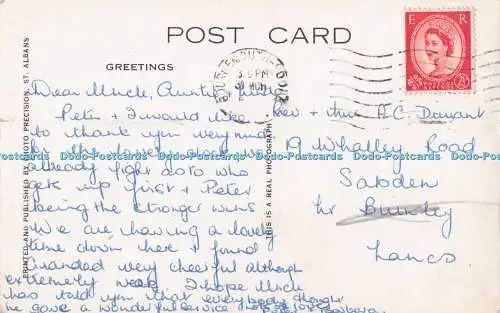 POST CARD
GREETINGS
E R
3.15PM
Dear Uncle, Aunty
Peter & I would like
to thank you very much
for the lovely clock we
already fight as to who
gets up first & Peter
being the stronger wins
We are having a lovely
time down here & found
Grandad very cheerful although
extremely weak I hope Uncle
has told you that everybody thought
he gave a wonderful service
Rev. & Mrs A.C. Dowant
19 Whalley Road
Sabden
Nr Burnley
Lancs
PRINTED AND PUBLISHED BY PHOTO PRECISION, ST. ALBANS
THIS IS A REAL PHOTOGRAPH
Dodo-Postcards Dodo-Postcards Dodo-Postcards Dodo-Postcards Dodo-Postcards Dodo-Postcards